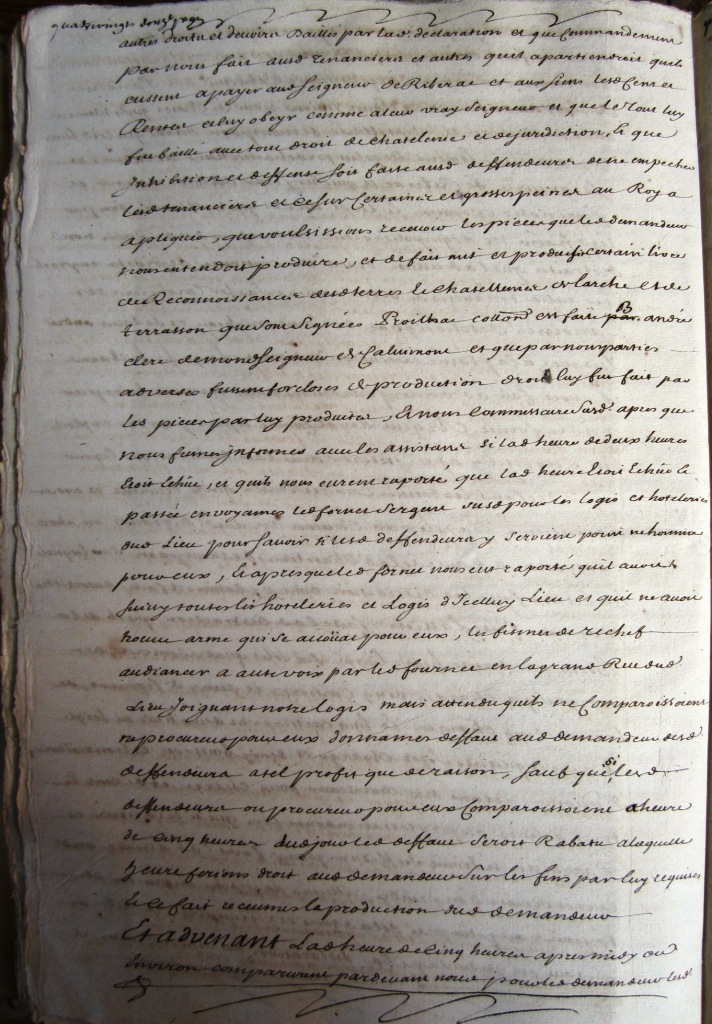 quatre vingts douze pages
autres droits et devoirs baillés par lad. declaration et que Commandement
par nous fait ausd. tenanciers et autres quil apartiendroit quils
eussent a payer aud Seigneur de Riberac et aux siens lesd Cens et
Rentes et luy obeyr comme a leur vray Seigneur et que le tout luy
fut baillé avec tout droit de chatelenie et de juridiction, Et que
Inhibition et deffense soit faite ausd deffendeurs de ne empecher
lesd tenanciers et ce sur Certaines et grosses peines au Roy a
apliquer, que voulsissions recevoir les pieces que led demandeur
nous entendoit produire, et de fait mit et produisit certain livre
de Reconnoissances desd terres et Chatellenies de larche et de
terrasson que sont Signées cotton et faite par andré
clerc de monseigneur de Calvimont et que par nous parties
adverses fussent forcloses de production droit luy fut fait par
les pieces par luy produites, Et nous Commissaire susd. apres que
nous fumes informes avec les assistans si lad heure de deux heures
Etoit Echue, et quils nous eurent raporté que lad heure Etoit Echue et
passée envoyames led fornet Sergent susd pour les logis et hoteleries
dud Lieu pour savoir si lesd deffendeurs y Seroient point ne homme
pour eux, Et apres que led fornet nous eut raporté quil avoit
suivy toutes les hoteleries et Logis d'Icelluy Lieu et quil ne avoit
trouvé arme qui se avouat pour eux, les fismes de rechef
audiancer a aute voix par led fournet en la grand Rue dud
Lieu Joignant notre logis mais attendu quils ne Comparoissoient
ne procureur pour eux donnames deffaut aud demandeur desd
deffendeurs a tel profit que de raison, sauf que si lesd
deffendeurs ou procureur pour eux Comparoissoient a heure
de cinq heures dud jour led deffaut Seroit Rabatu a laquelle
heure ferions droit aud demandeur sur les fins par luy requises
Et ce fait receumes la production dud demandeur
Et advenant Lad heure de cinq heures apres midy ou
Environ comparurent pardevant nous pour led demandeur lesd